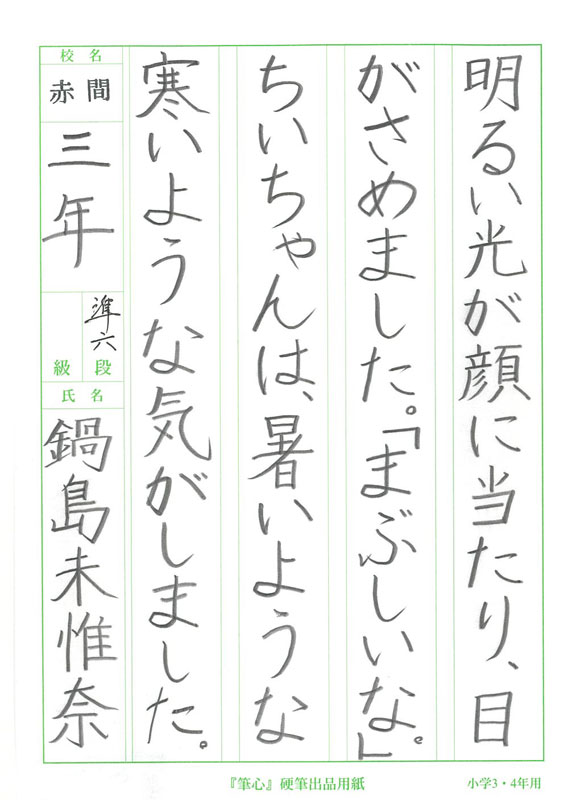 明るい光が顔に当たり、目
がさめました。「まぶしいな。」
ちいちゃんは、暑いような
寒いような気がしました。
校名
赤間
三年
準六
級段
氏名
鍋島未惟奈
『筆心』硬筆出品用紙
小学3・4年用